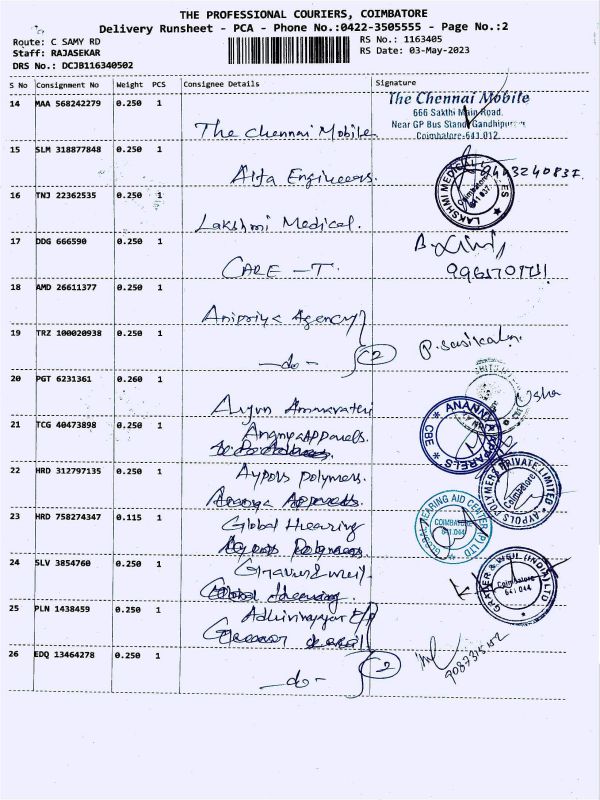 THE PROFESSIONAL COURIERS, COIMBATORE
Delivery Runsheet - PCA - Phone No.:0422-3505555 - Page No.:2
Route: C SAMY RD
Staff: RAJASEKAR
DRS No.: DCJB116340502
RS No.: 1163405
RS Date: 03-May-2023
S No Consignment No Weight PCS Consignee Details Signature
14 MAA 568242279 0.250 1
The Chennai Mobile
The Chennai Mobile
666 Sakthi Main Road,
Near GP Bus Stand, Gandhipuram
Coimbatore-641 012.
15 SLM 318877848 0.250 1
Alfa Engineers.
9443240837.
16 TNJ 22362535 0.250 1
Lakshmi Medical.
LAKSHMI MEDICAL
Coimbatore
641 037
17 DDG 666590 0.250 1
CARE - T.
18 AMD 26611377 0.250 1
Anipriya Agency
19 TRZ 100020938 0.250 1
-do- 2
P. Sasikala
20 PGT 6231361 0.260 1
Usha
21 TCG 40473898 0.250 1
Ananya Apparels.
ANANYA APPARELS
CBE
22 HRD 312797135 0.250 1
Aypols polymers.
Ananya Apparels.
AYPOLS POLYMERS PRIVATE LIMITED
Coimbatore
23 HRD 758274347 0.115 1
Global Hearing
Aypols Polymers
GLOBAL HEARING AID CENTER (P) LTD
COIMBATORE
641 044
24 SLV 3854760 0.250 1
Grauer & Weil.
Global Hearing.
GRAUER & WEIL (INDIA) LTD
Coimbatore
641 044
25 PLN 1438459 0.250 1
26 EDQ 13464278 0.250 1
-do- 2